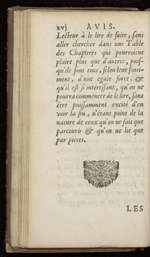 xvj AVIS.
Lecteur à le lire de suite, sans
aller chercher dans une Table
des Chapitres qui pourroient
plaire plus que d'autres, puis-
qu'ils sont tous, selon leur senti-
ment, d'une égale force, &
qu'il est si interessant, qu'on ne
pourra commencer de le lire, sans
être puissamment excité d'en
voir la fin, n'étant point de la
nature de ceux qu'on ne fait que
parcourir & qu'on ne lit que
par pieces.
LES